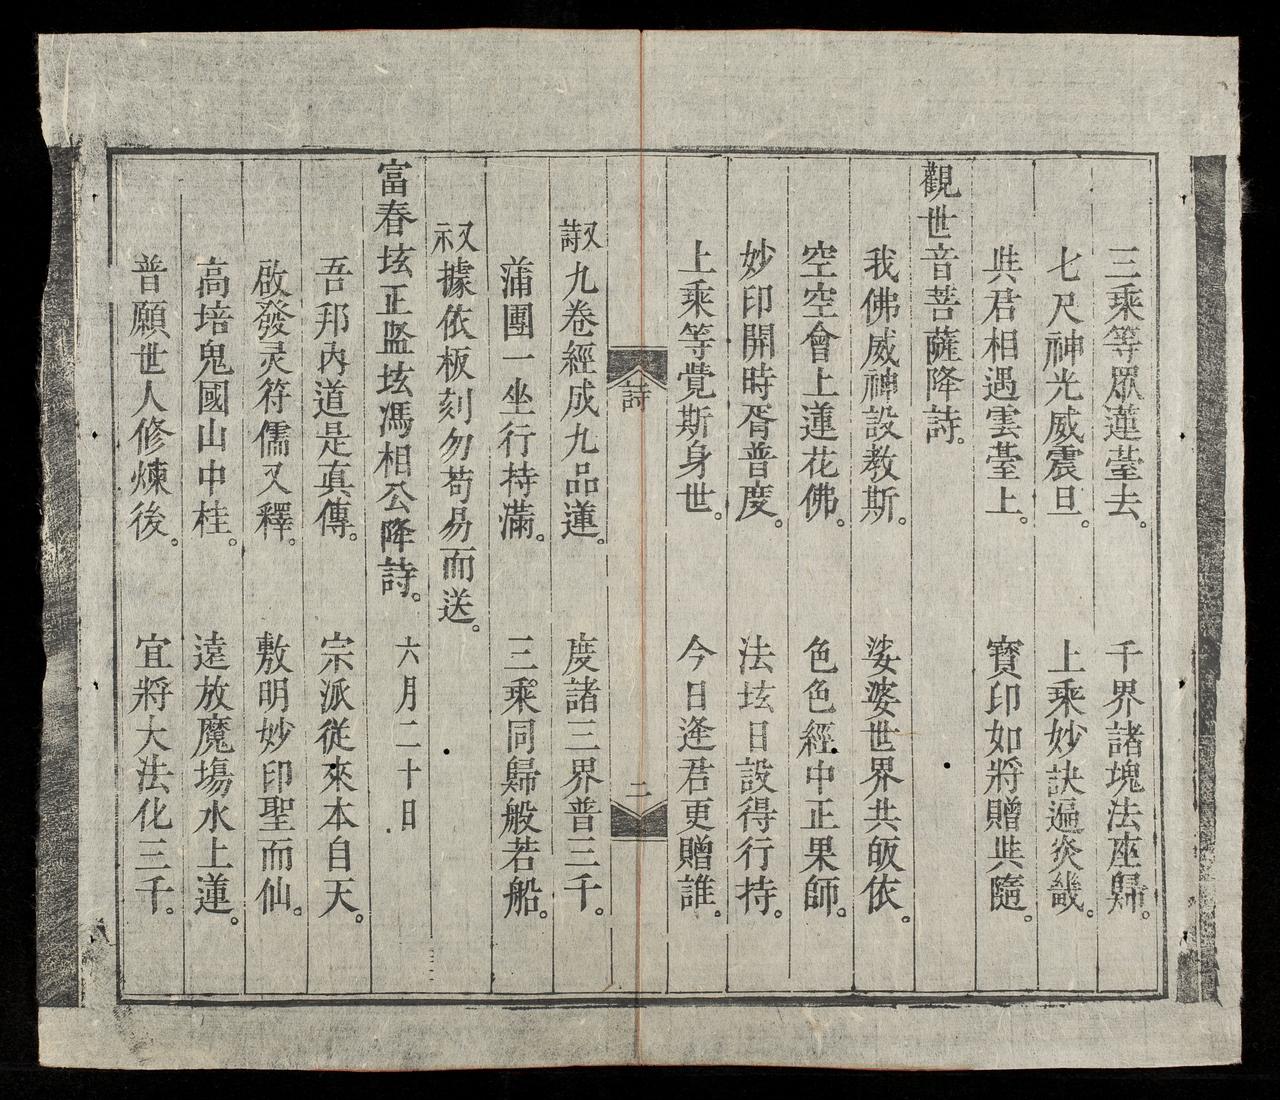 三乘等眾蓮䑓去。千界諸塊法座歸。
七尺神光威震旦。上乘妙訣遍炎畿。
與君相遇雲䑓上。寶印如將贈與隨。
觀世音菩薩降詩。
我佛威神設教斯。娑婆世界共皈依。
空空會上蓮花佛。色色經中正果師。
妙印開時胥普度。法坛日設得行持。
上乘等覺斯身世。今日逢君更贈誰。
詩
二
又詩九卷經成九品蓮。度諸三界普三千。
蒲團一坐行持滿。三乘同歸般若船。
又示據依板刻勿苟易而送。
富春坛正盓坛馮相公降詩。六月二十日
吾邦內道是真傳。宗派從來本自天。
啟發灵符儒又釋。敷明妙印聖而仙。
高培鬼國山中桂。遠放魔塲水上蓮。
普願世人修煉後。宜將大法化三千。